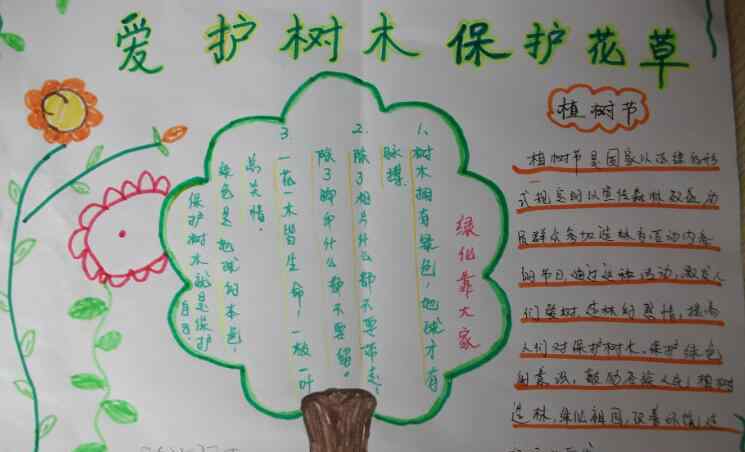 爱护树木保护花草
绿化靠大家
1、树木拥有绿色，地球才有
脉搏。
2、除了相片什么都不要带走，
除了脚印什么都不要留。
3、一花一木皆生命，一枝一叶
总关情。
绿色是地球的本色，
保护树木就是保护
自己。
植树节
植树节是国家以法律的形
式规定的以宣传森林效益动
员群众参加造林为活动内容
的节日，通过这种活动，激发人
们爱树、造林的感情，提高
人们对保护树木，保护绿色
的意识，鼓励各族人民，植树
造林，绿化祖国，改善环境，造